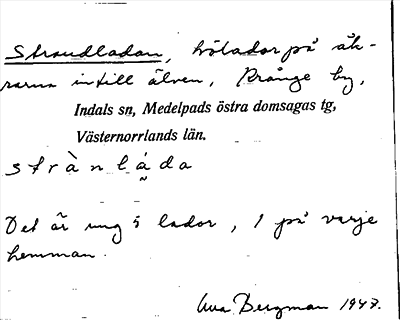 Strandladan, hölador på åk-
rarna intill älven, Prånge by,
Indals sn, Medelpads östra domsagas tg,
Västernorrlands län.
strànlá̰da
Det är ung 5 lador, 1 på varje
hemman.
Bergman 1947.